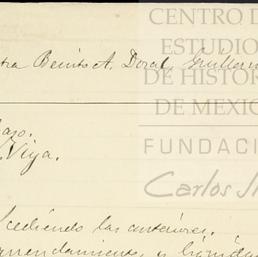 CENTRO D
ESTUDIO
DE HISTOR
DE MEXIC
FUNDACI
Carlos Sl
tra Benito A. Doral, Guillerm
Viya.
cediendo las anteriores.
arrendamiento y